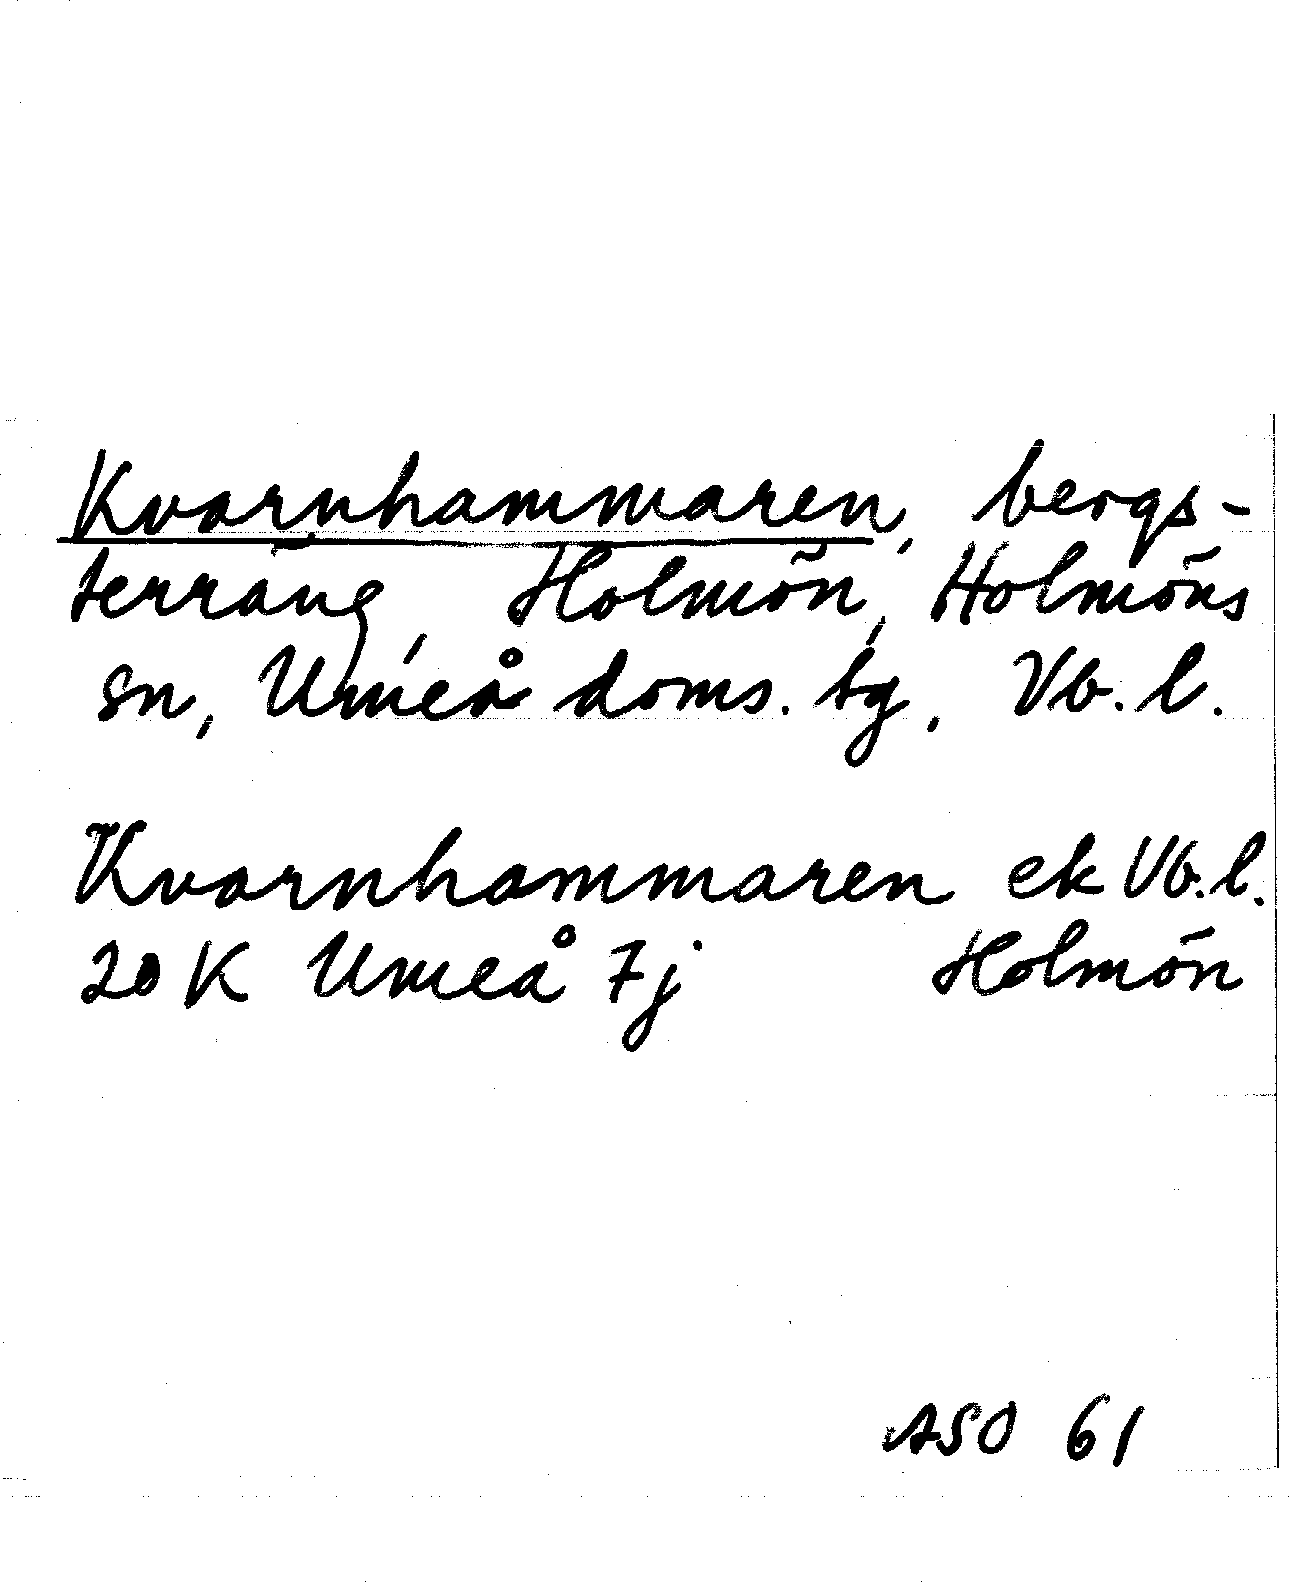 Kvarnhammaren, bergs-
terräng, Holmön, Holmöns
sn, Umeå doms. tg. Vb. l.
Kvarnhammaren ek Vb. l.
20 K Umeå 7j Holmön
ASO 61